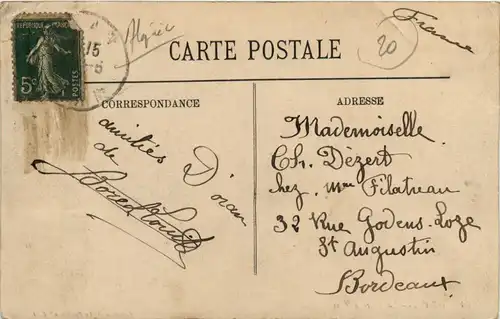 France
Algérie
RÉPUBLIQUE FRANÇAISE
5c
POSTES
15
20
CARTE POSTALE
CORRESPONDANCE
ADRESSE
amitiés D'oran
de
Mademoiselle
Ch. Dézert
chez Mme Filatreau
32 Rue Godens. Loze
St Augustin
Bordeaux